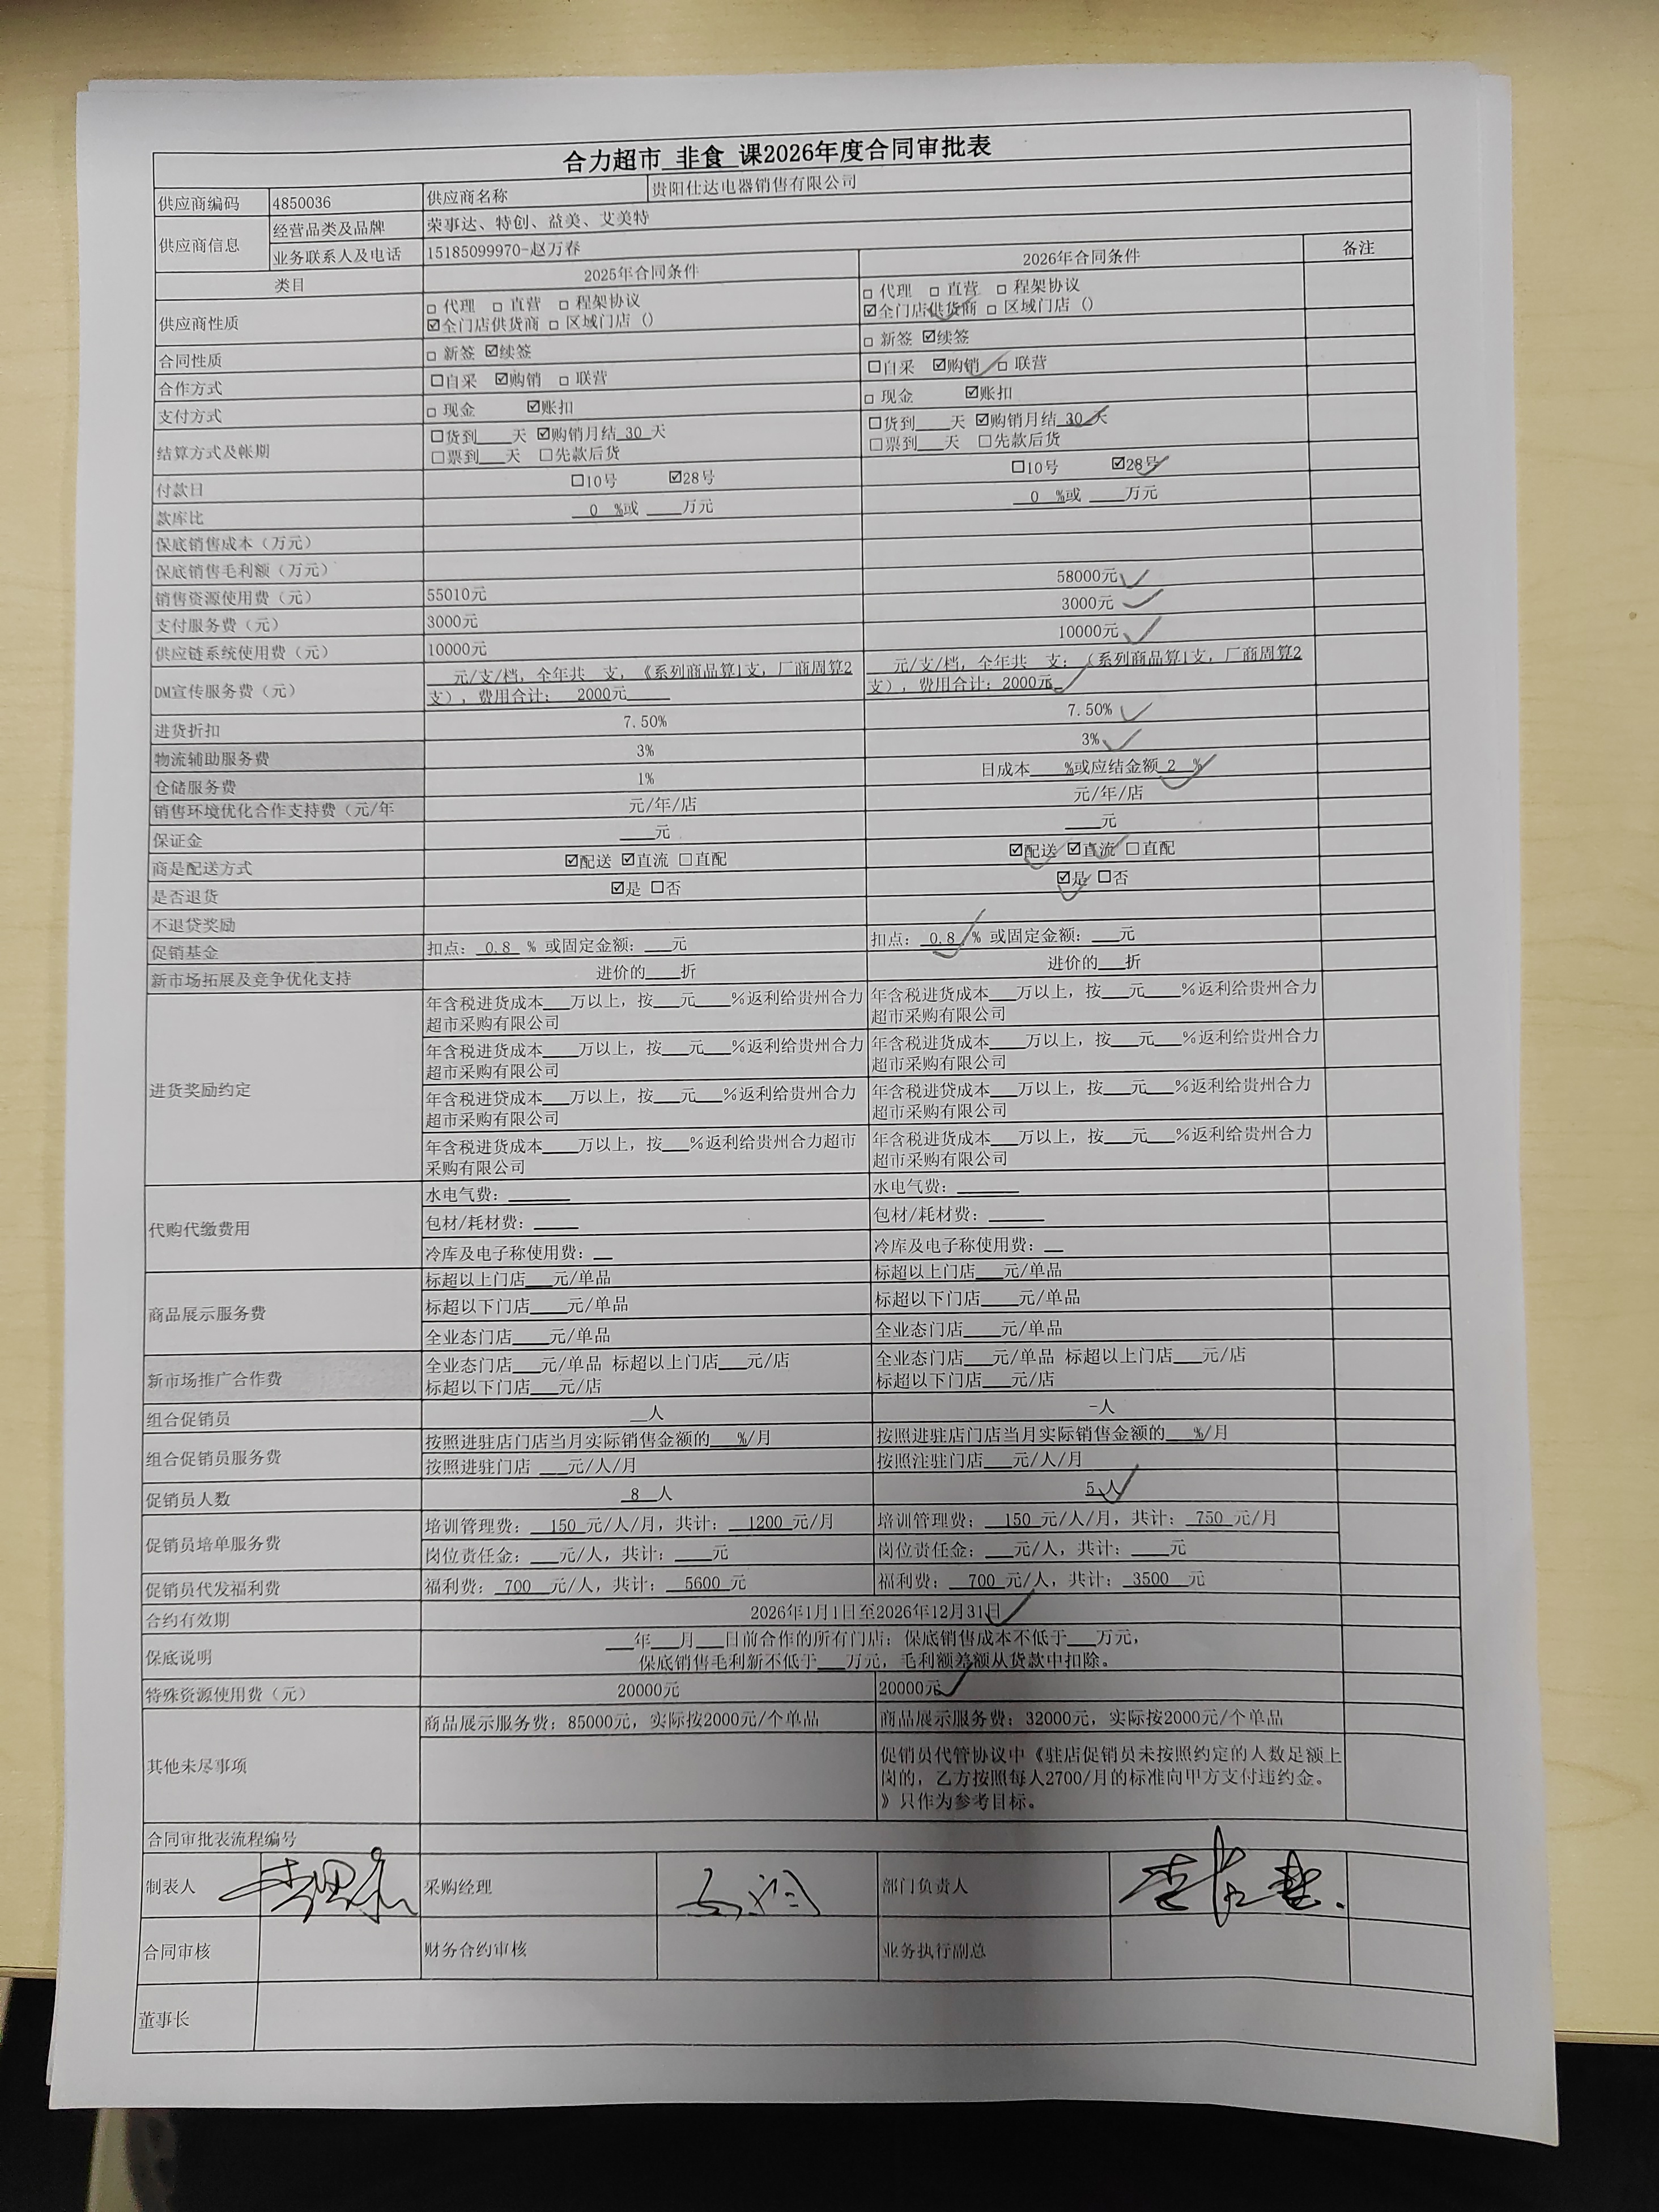 合力超市 非食 课2026年度合同审批表
供应商编码 4850036 供应商名称 贵阳仕达电器销售有限公司
供应商信息 经营品类及品牌 荣事达、特创、益美、艾美特
业务联系人及电话 15185099970-赵万春
类目 2025年合同条件 2026年合同条件 备注
供应商性质 □ 代理 □ 直营 □ 程架协议 □ 代理 □ 直营 □ 程架协议
☑全门店供货商 □ 区域门店 () ☑全门店供货商 □ 区域门店 ()
合同性质 □ 新签 ☑续签 □ 新签 ☑续签
合作方式 □自采 ☑购销 □ 联营 □自采 ☑购销 □ 联营
支付方式 □ 现金 ☑账扣 □ 现金 ☑账扣
结算方式及帐期 □货到___天 ☑购销月结 30 天 □货到___天 ☑购销月结 30 天
□票到___天 □先款后货 □票到___天 □先款后货
付款日 □10号 ☑28号 □10号 ☑28号
款库比 0 %或 ___万元 0 %或 ___万元
保底销售成本（万元）
保底销售毛利额（万元）
销售资源使用费（元） 55010元 58000元
支付服务费（元） 3000元 3000元
供应链系统使用费（元） 10000元 10000元
DM宣传服务费（元） ___元/支/档，全年共__支，《系列商品算1支，厂商周算2 ___元/支/档，全年共__支；（系列商品算1支，厂商周算2
支），费用合计： 2000元 支），费用合计：2000元
进货折扣 7.50% 7.50%
物流辅助服务费 3% 3%
仓储服务费 1% 日成本___%或应结金额 2 %
销售环境优化合作支持费（元/年 元/年/店 元/年/店
保证金 ___元 ___元
商是配送方式 ☑配送 ☑直流 □直配 ☑配送 ☑直流 □直配
是否退货 ☑是 □否 ☑是 □否
不退贷奖励
促销基金 扣点： 0.8 % 或固定金额：___元 扣点： 0.8 % 或固定金额：___元
新市场拓展及竞争优化支持 进价的___折 进价的___折
进货奖励约定 年含税进货成本___万以上，按___元___%返利给贵州合力 年含税进货成本___万以上，按___元___%返利给贵州合力
超市采购有限公司 超市采购有限公司
年含税进货成本___万以上，按___元___%返利给贵州合力 年含税进货成本___万以上，按___元___%返利给贵州合力
超市采购有限公司 超市采购有限公司
年含税进贷成本___万以上，按___元___%返利给贵州合力 年含税进贷成本___万以上，按___元___%返利给贵州合力
超市采购有限公司 超市采购有限公司
年含税进货成本___万以上，按___%返利给贵州合力超市 年含税进货成本___万以上，按___元___%返利给贵州合力
采购有限公司 超市采购有限公司
代购代缴费用 水电气费：______ 水电气费：______
包材/耗材费：____ 包材/耗材费：_____
冷库及电子称使用费：__ 冷库及电子称使用费：__
商品展示服务费 标超以上门店___元/单品 标超以上门店___元/单品
标超以下门店____元/单品 标超以下门店____元/单品
全业态门店____元/单品 全业态门店____元/单品
新市场推广合作费 全业态门店___元/单品 标超以上门店___元/店 全业态门店___元/单品 标超以上门店___元/店
标超以下门店___元/店 标超以下门店___元/店
组合促销员 __人 -人
组合促销员服务费 按照进驻店门店当月实际销售金额的___%/月 按照进驻店门店当月实际销售金额的___%/月
按照进驻门店 ___元/人/月 按照注驻门店___元/人/月
促销员人数 8 人 5 人
促销员培单服务费 培训管理费： 150 元/人/月，共计： 1200 元/月 培训管理费： 150 元/人/月，共计： 750 元/月
岗位责任金：___元/人，共计：____元 岗位责任金：___元/人，共计：____元
促销员代发福利费 福利费： 700 元/人，共计： 5600 元 福利费： 700 元/人，共计： 3500 元
合约有效期 2026年1月1日至2026年12月31日
保底说明 ___年___月___日前合作的所有门店：保底销售成本不低于___万元，
保底销售毛利新不低于___万元，毛利额差额从货款中扣除。
特殊资源使用费（元） 20000元 20000元
其他未尽事项 商品展示服务费：85000元，实际按2000元/个单品 商品展示服务费：32000元，实际按2000元/个单品
促销员代管协议中《驻店促销员未按照约定的人数足额上
岗的，乙方按照每人2700/月的标准向甲方支付违约金。
》只作为参考目标。
合同审批表流程编号
制表人 采购经理 部门负责人
合同审核 财务合约审核 业务执行副总
董事长